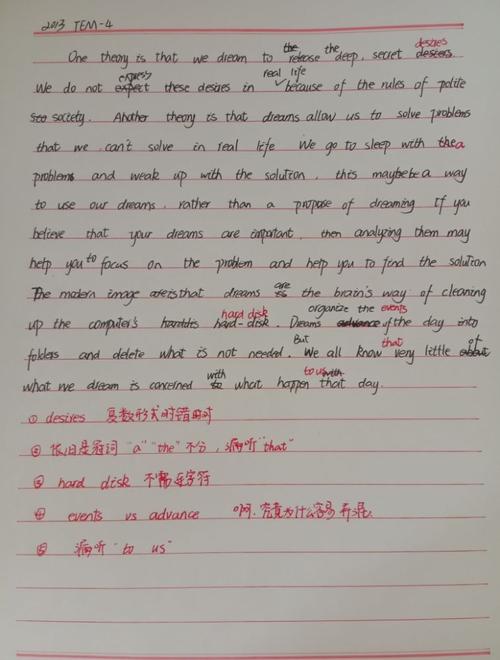 2013 TEM-4
desires
the
One theory is that we dream to release the deep, secret desters.
express
real life
We do not expect these desires in because of the rules of polite
soo society. Another theory is that dreams allow us to solve problems
that we can't solve in real life We go to sleep with thea
problems and weak up with the solution, this maybebe a way
to use our dreams, rather than a propose of dreaming If you
believe that your dreams are important, then analyzing them may
to
help you focus on the problem and help you to find the solution
are
The modern image areisthat dreams is the brain's way of cleaning
hard disk
organize the events
up the computer's harddis hard-disk. Dreams advance of the day into
But
that
of
folders and delete what is not needed. We all know very little about
with
to us
what we dream is concerned to what happen with that day.
① desires 复数形式时错时对
② 依旧是冠词 "a" "the" 不分, 漏听 "that"
③ hard disk 不需连字符
④ events vs advance 啊, 究竟为什么容易弄混
⑤ 漏听 "to us"